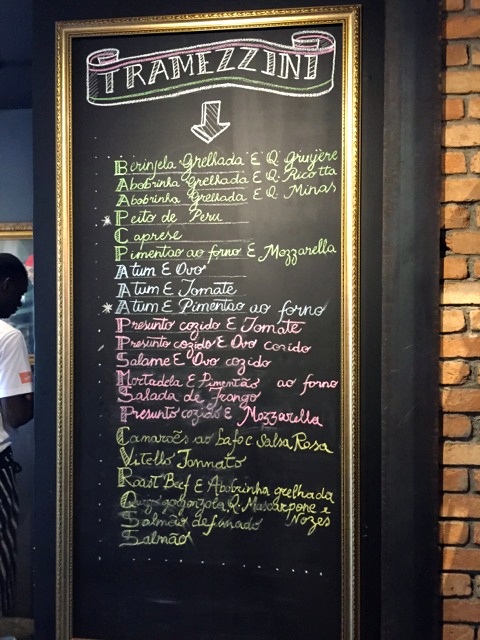 TRAMEZZINI
Berinjela Grelhada E Q. Gruyère
Abobrinha Grelhada E Q. Ricotta
Abobrinha Grelhada E Q. Minas
* Peito de Peru
Caprese
Pimentão ao forno E Mozzarella
Atum E Ovo
Atum E Tomate
* Atum E Pimentão ao forno
Presunto cozido E Tomate
Presunto cozido E Ovo cozido
Salame E Ovo cozido
Mortadela E Pimentão ao forno
Salada de Frango
Presunto cozido E Mozzarella
Camarões ao bafo e Salsa Rosa
Vitello Tonnato
Roast Beef E Abobrinha grelhada
Q. Mascarpone e
Nozes
Salmão defumado
Salmão